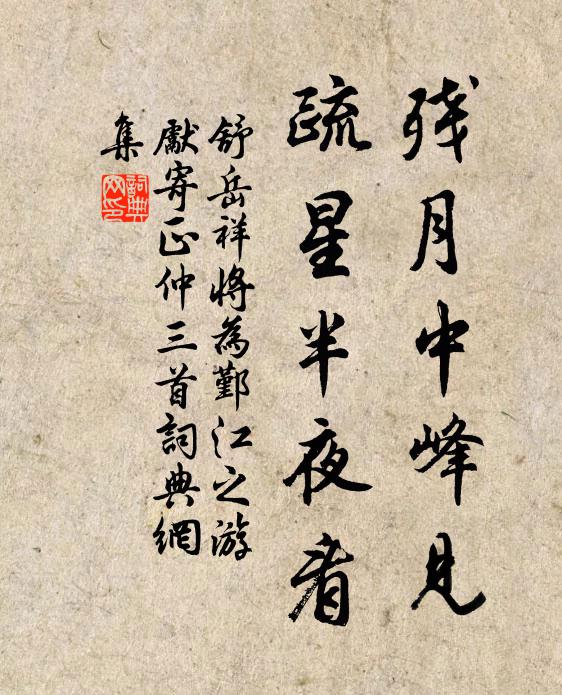 残月中峰見
疏星半夜看
舒岳祥將為鄞江之游
獻寄正仲三首詞典網
集
詞典
网印